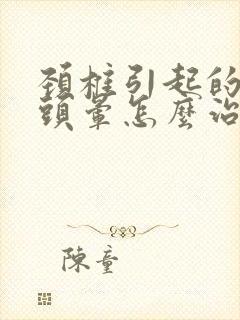 頚椎引起的
頭暈怎麼治
陳童